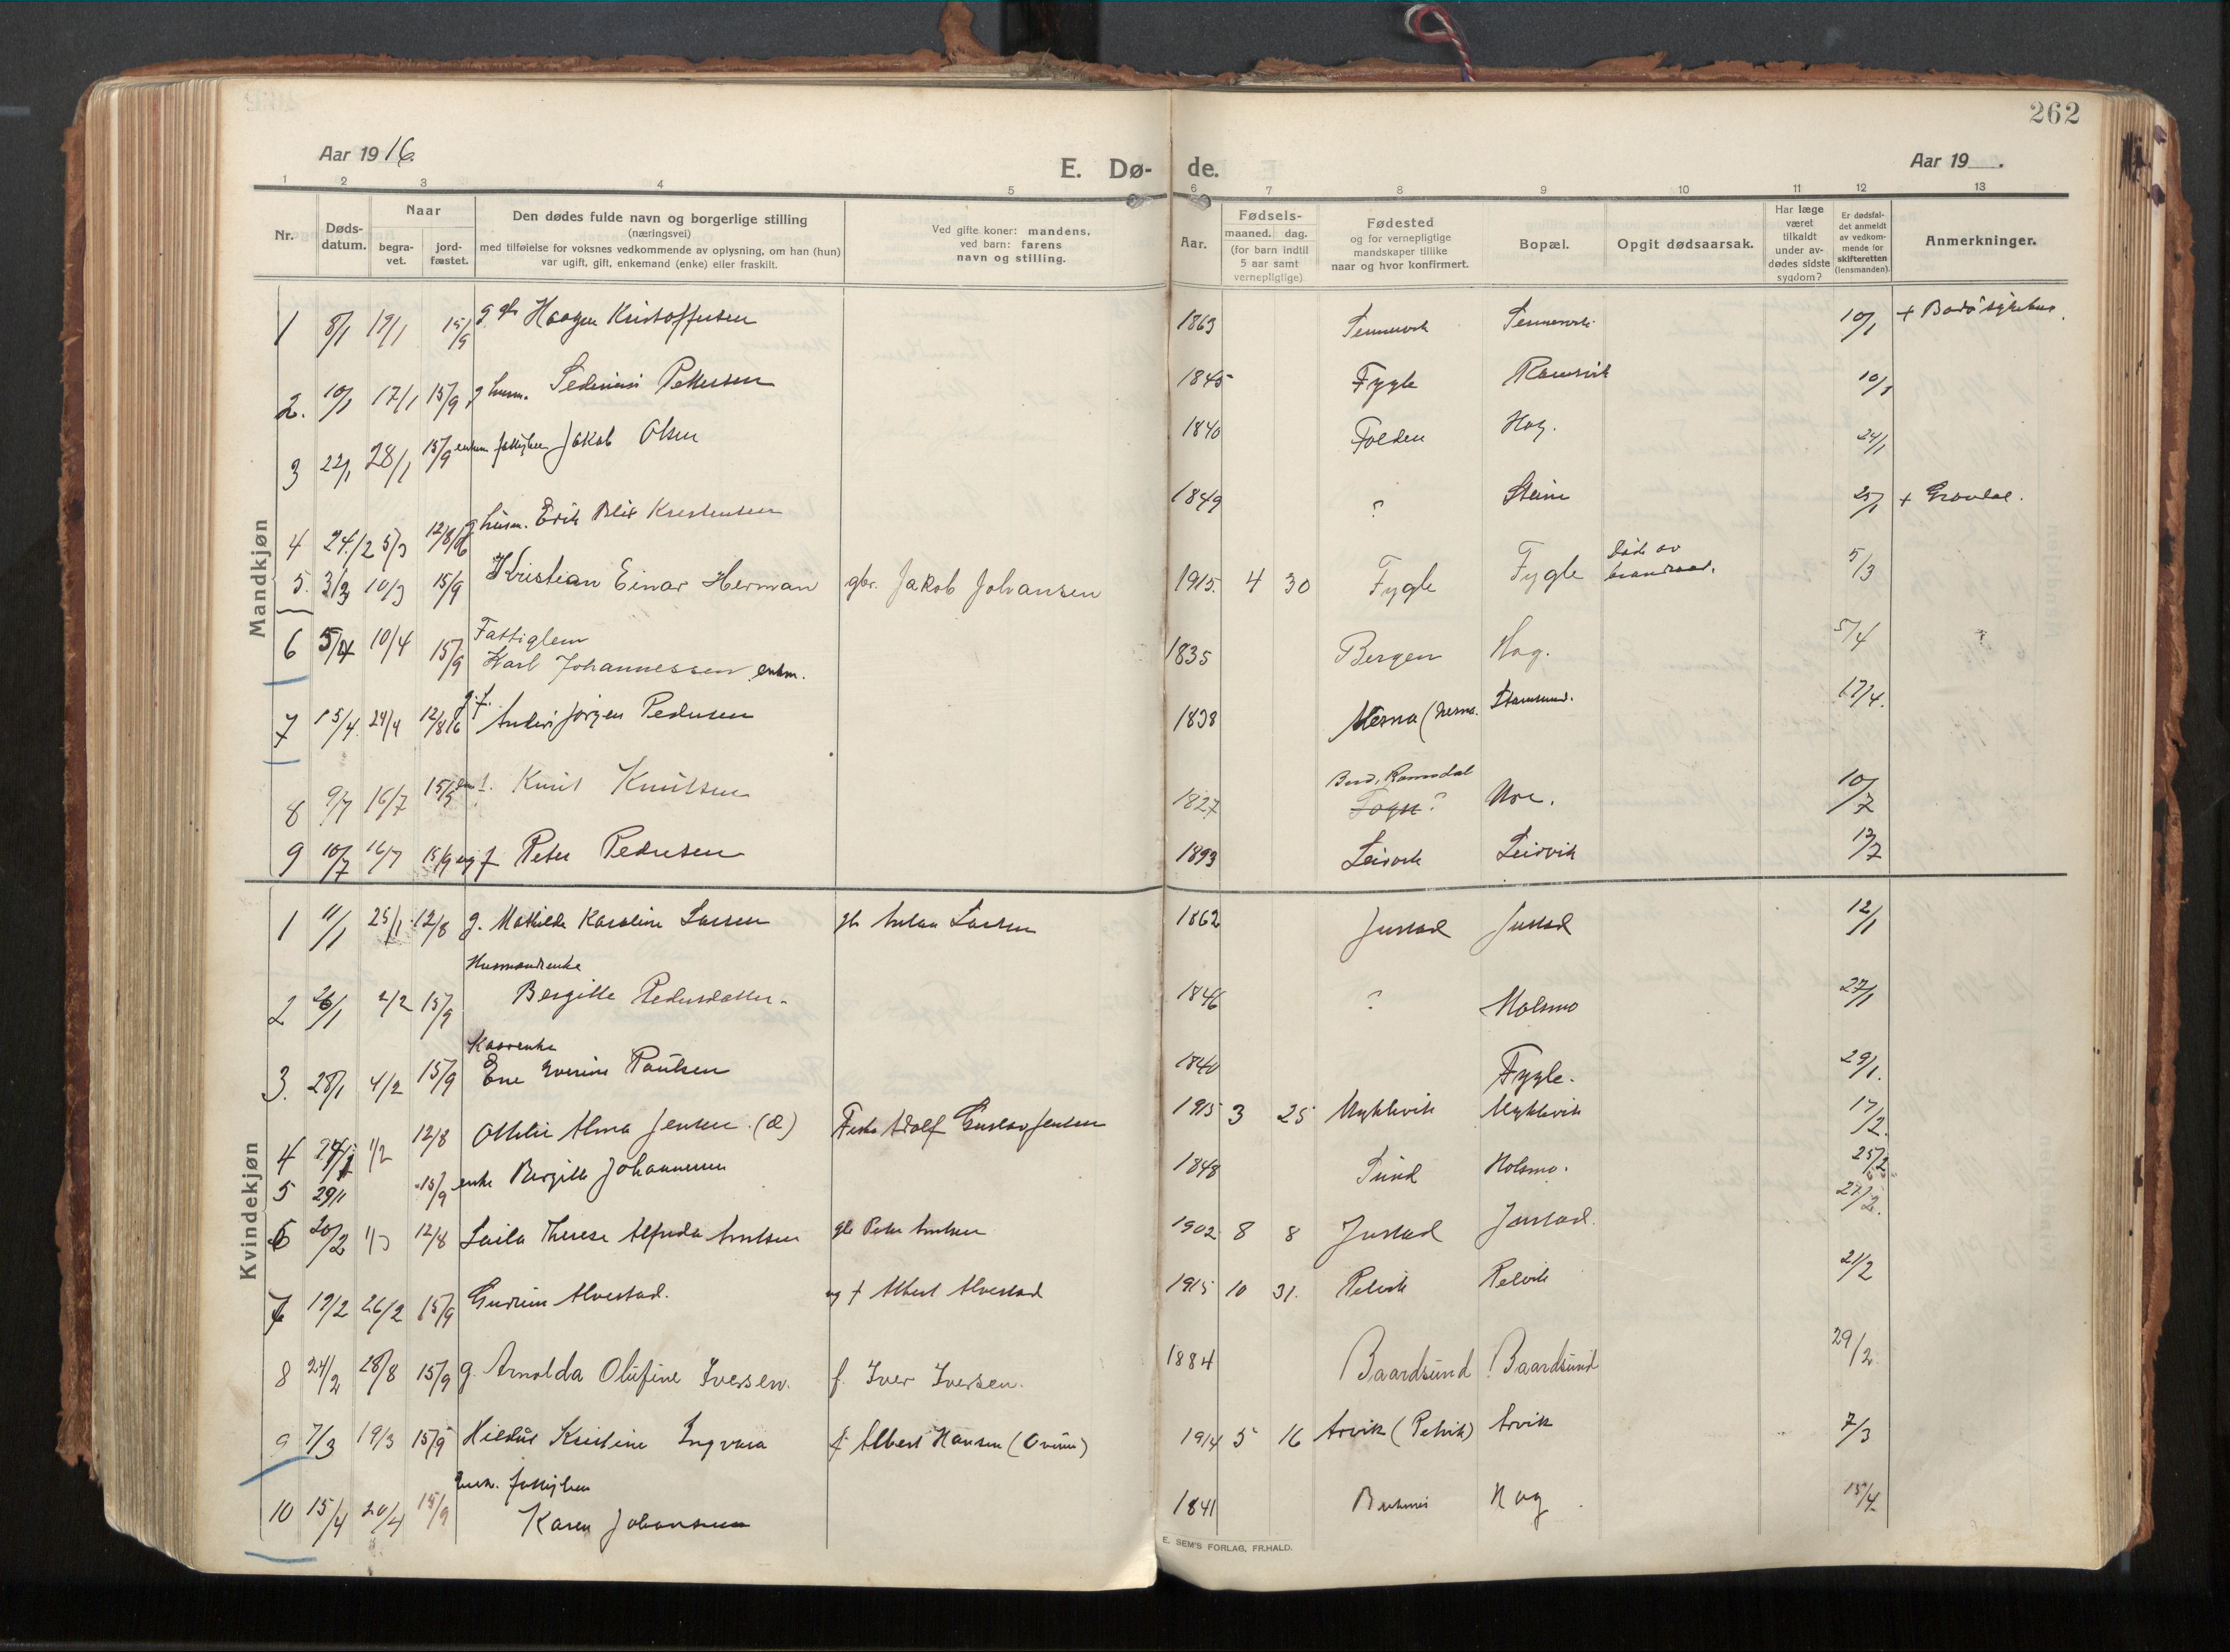 262
Aar 1916.
E. Dø-
de.
Aar 19 .
1 2 3 4 5 6 7 8 9 10 11 12 13
Nr.
Døds-
datum.
Naar
begra-
vet.
jord-
fæstet.
Den dødes fulde navn og borgerlige stilling
(næringsvei)
med tilføielse for voksnes vedkommende av oplysning, om han (hun)
var ugift, gift, enkemand (enke) eller fraskilt.
Ved gifte koner: mandens,
ved barn: farens
navn og stilling.
Aar.
Fødsels-
maaned. dag.
(for barn indtil
5 aar samt
vernepligtige)
Fødested
og for vernepligtige
mandskaper tillike
naar og hvor konfirmert.
Bopæl.
Opgit dødsaarsak.
Har læge
været
tilkaldt
under av-
dødes sidste
sygdom?
Er dødsfal-
det anmeldt
av vedkom-
mende for
skifteretten
(lensmanden).
Anmerkninger.
Mandkjøn
1 8/1 19/1 15/9 Haagen Kristoffersen 1863 10/1
2. 10/1 17/1 15/9 g husm. Pettersen 1845 Fygle Ramsvik
3 22/1 28/1 15/9 Jakob Olsen 1840 Folden Hag. 24/1
4 24/2 5/3 g husm. Erik Blix Kristensen 1849 ? Steine + Gravdal.
5. 10/3 15/9 Kristian Einar Herman gbr. Jakob Johansen 1915. 4 30 Fygle Fygle 5/3
Fattiglem
6 5/4 10/4 15/9 Karl Johannessen enkm. 1835 Bergen Hag. 5/4
7 15/4. 24/4 Jørgen Pedersen 1838 Stamsund. 17/4.
Bud, Romsdal
8 9/7 16/7 Knut Knutsen 1827 Ure. 10/7
9 10/7 16/7 15/9 ug f Peter Pedersen 1893 Leirvik Leirvik
Kvindekjøn
1 11/1 25/1 12/8 g. Mathilde Karoline Larsen Larsen 1862 Justad Justad 12/1
Husmandsenke
2 26/1 2/2 15/9 Bergitte Pedersdatter. 1846 ? Holsmo 27/1
Kaarenke
3. 28/1 4/2 15/9 Ene Paulsen 1840 Fygle. 29/1.
4 1/2 12/8 Alma Jensen (d) Adolf Gustav Jensen 1915 3 25 Myklevik Myklevik 17/2.
5 29/1 15/9 enke Bergitte Johannessen 1848 Sund Holsmo. 25/2
6 20/2 1/3 12/8 Laila Therese Alfrida Arntsen Peter Arntsen 1902 8 8 Justad Justad. 27/2.
7 19/2 26/2 15/9 Gudrun Alvestad. ug f Albert Alvestad 1915 10 31. Pelvik Pelvik 21/2
8 24/2 28/8 15/9 g. Arnolda Olufine Iversen. f. Iver Iversen. 1884 Baardsund Baardsund 29/2
9 7/3 19/3 15/9 Kristine Ingvara f Albert Hansen 1914 5 16 Arvik (Pelvik) Arvik 7/3
10 15/4 20/4 15/9 Karen Johansen 1841 Hag 15/4
E. SEM'S FORLAG, FR.HALD.